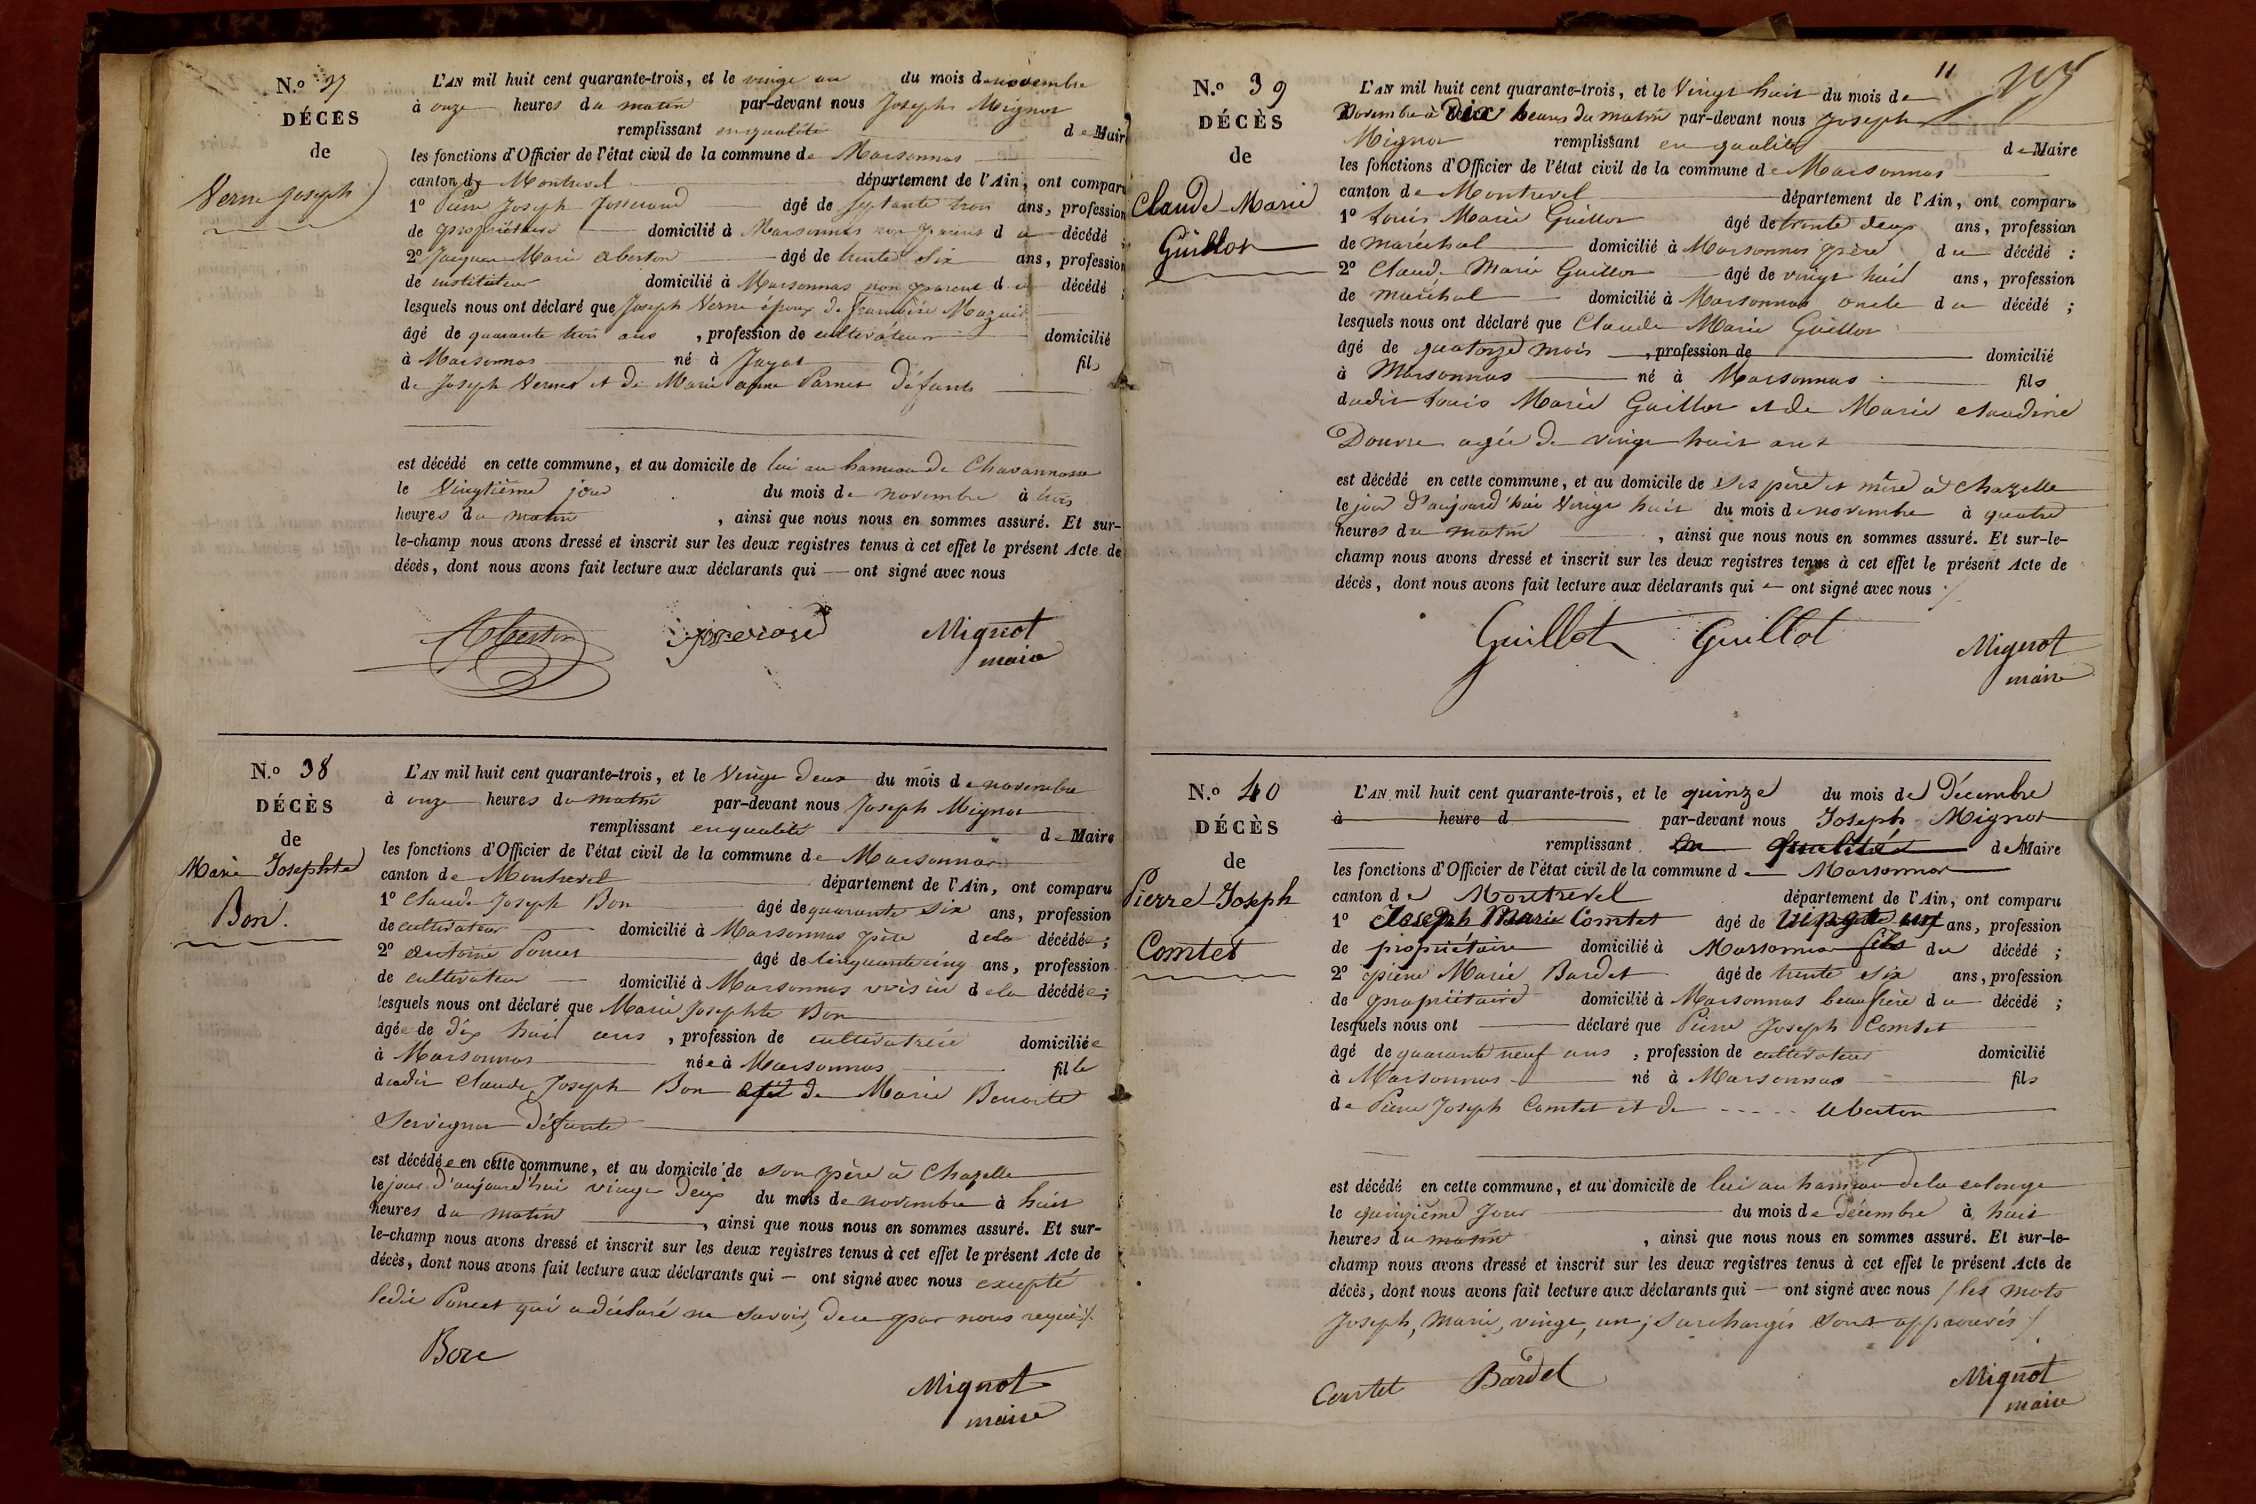 N.o 37
DÉCES
de
Verne Joseph
L'AN mil huit cent quarante-trois, et le vingt un du mois de novembre
à onze heures du matin par-devant nous Joseph Mignot
remplissant en qualité de Maire
les fonctions d'Officier de l'état civil de la commune de Marsonnas
canton de Montrevel département de l'Ain, ont comparu
1o Pierre Joseph Josserand âgé de septante trois ans, profession
de propriétaire domicilié à Marsonnas non parent du décédé
2o Jacques Marie Aberton âgé de trente six ans, profession
de instituteur domicilié à Marsonnas non parent du décédé ;
lesquels nous ont déclaré que Joseph Verne époux de françoise
âgé de quarante trois ans , profession de cultivateur domicilié
à Marsonnas né à Jayat fils
de Joseph Verne et de Marie anne Parnet Défunts
est décédé en cette commune, et au domicile de lui au hameau de Chavannosse
le Vingtième jour du mois de novembre à trois
heures du matin , ainsi que nous nous en sommes assuré. Et sur-
le-champ nous avons dressé et inscrit sur les deux registres tenus à cet effet le présent Acte de
décès, dont nous avons fait lecture aux déclarants qui — ont signé avec nous
Aberton Josserand Mignot
maire
N.o 38
DÉCÈS
de
Marie Josephte
Bon.
L'AN mil huit cent quarante-trois, et le Vingt deux du mois de novembre
à onze heures du matin par-devant nous Joseph Mignot
remplissant en qualité de Maire
les fonctions d'Officier de l'état civil de la commune de Marsonnas
canton de Montrevel département de l'Ain, ont comparu
1o Claude Joseph Bon âgé de quarante six ans, profession
de cultivateur domicilié à Marsonnas père de la décédée ;
2o Antoine Poncet âgé de cinquante cinq ans, profession
de cultivateur domicilié à Marsonnas voisin de la décédée ;
lesquels nous ont déclaré que Marie Josephte Bon
âgée de dix huit ans , profession de cultivatrice domiciliée
à Marsonnas née à Marsonnas fille
dudit Claude Joseph Bon et de Marie Benoite
Servignat Défunte
est décédée en cette commune, et au domicile de son père à Chazelle
le jour d'aujourd'hui vingt deux du mois de novembre à huit
heures du matin , ainsi que nous nous en sommes assuré. Et sur-
le-champ nous avons dressé et inscrit sur les deux registres tenus à cet effet le présent Acte de
décès, dont nous avons fait lecture aux déclarants qui — ont signé avec nous excepté
ledit Poncet qui a déclaré ne savoir, de ce par nous requis ./.
Bon
Mignot
maire
11
N.o 39
DÉCÈS
de
Claude-Marie
Guillot
L'AN mil huit cent quarante-trois, et le Vingt huit du mois de
Novembre à Dix heures du matin par-devant nous Joseph
Mignot remplissant en qualité de Maire
les fonctions d'Officier de l'état civil de la commune de Marsonnas
canton de Montrevel département de l'Ain, ont comparu
1o Louis Marie Guillot âgé de trente deux ans, profession
de maréchal domicilié à Marsonnas père du décédé ;
2o Claude Marie Guillot âgé de vingt huit ans, profession
de maréchal domicilié à Marsonnas oncle du décédé ;
lesquels nous ont déclaré que Claude Marie Guillot
âgé de quatorze mois , profession de domicilié
à Marsonnas né à Marsonnas fils
dudit Louis Marie Guillot et de Marie claudine
Douvre agée de vingt huit ans
est décédé en cette commune, et au domicile de ses père et mère à Chazelle
le jour d'aujourd'hui Vingt huit du mois de novembre à quatre
heures du matin , ainsi que nous nous en sommes assuré. Et sur-le-
champ nous avons dressé et inscrit sur les deux registres tenus à cet effet le présent Acte de
décès, dont nous avons fait lecture aux déclarants qui — ont signé avec nous ./.
Guillot Guillot Mignot
maire
N.o 40
DÉCÈS
de
Pierre Joseph
Comtet
L'AN mil huit cent quarante-trois, et le quinze du mois de Décembre
à heure d par-devant nous Joseph Mignot
remplissant en qualité de Maire
les fonctions d'Officier de l'état civil de la commune de Marsonnas
canton de Montrevel département de l'Ain, ont comparu
1o Joseph Marie Comtet âgé de vingt un ans, profession
de propriétaire domicilié à Marsonnas fils du décédé ;
2o pierre Marie Bardet âgé de trente six ans, profession
de propriétaire domicilié à Marsonnas beaufrère du décédé ;
lesquels nous ont déclaré que Pierre Joseph Comtet
âgé de quarante neuf ans , profession de cultivateur domicilié
à Marsonnas né à Marsonnas fils
de Pierre Joseph Comtet et de ..... Aberton
est décédé en cette commune, et au domicile de lui au hameau de la colonge
le quinzième Jour du mois de décembre à huit
heures du matin , ainsi que nous nous en sommes assuré. Et sur-le-
champ nous avons dressé et inscrit sur les deux registres tenus à cet effet le présent Acte de
décès, dont nous avons fait lecture aux déclarants qui — ont signé avec nous / les mots
Joseph, Marie, vingt, un, surchargés sont approuvés /
Comtet Bardet Mignot
maire